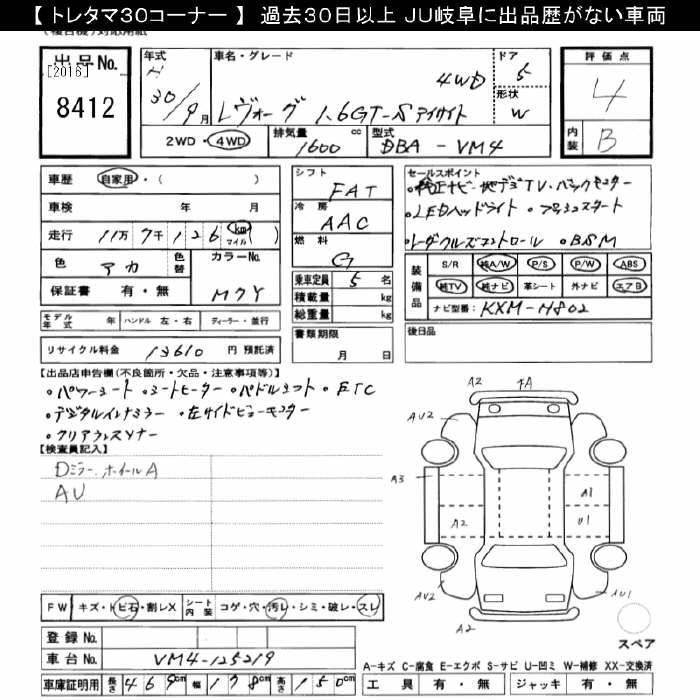 【トレタマ30コーナー】 過去30日以上 JU岐阜に出品歴がない車両
出品No.
[2016]
8412
年式
H
30/9月
車名・グレード
レヴォーグ 1.6GT-S アイサイト 4WD
ドア
5
形状
W
評価点
4
内装
B
2WD・4WD
排気量
1600 cc
型式
DBA-VM4
車歴 自家用・( )
車検 年 月
走行 11万 7千 1 2 6 (km マイル)
色 アカ
色替
カラーNo.
M7Y
保証書 有・無
モデル年式 年 ハンドル 左・右 ディーラー・並行
リサイクル料金 13610 円 預託済
シフト
FAT
冷房
AAC
燃料
G
乗車定員 5 名
積載量 kg
総重量 kg
書類期限
月 日
セールスポイント
・純正ナビ・地デジTV・バックモニター
・LEDヘッドライト・プッシュスタート
・レーダークルーズコントロール・BSM
装備品
S/R 純A/W P/S P/W ABS
純TV 純ナビ 革シート 外ナビ エアB
ナビ型番: KXM-H802
後日品
【出品店申告欄(不良箇所・欠品・注意事項等)】
・パワーシート・シートヒーター・パドルシフト・ETC
・デジタルインナーミラー・左サイドビューモニター
・クリアランスソナー
【検査員記入】
Dミラー、ホイールA
AU
A2
FA
AU2
A3
A1
A2
U1
AU2
AU1
A2
スペア
FW キズ・トビ石・割レX シート内装 コゲ・穴・汚レ・シミ・破レ・スレ
登録No.
車台No. VM4-125219
車庫証明用 長さ 469cm 幅 178cm 高さ 150cm
A-キズ C-腐食 E-エクボ S-サビ U-凹ミ W-補修 XX-交換済
工具 有・無 ジャッキ 有・無